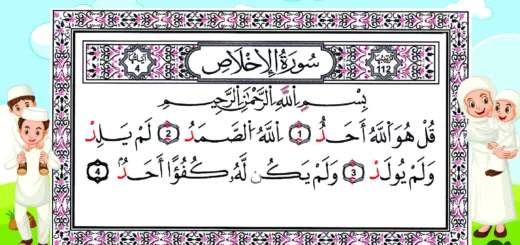 سُورَةُ الْإِخْلَاصِ
اٰيَاتُهَا 4
تَرْتِيبُهَا 112
بِسْمِ اللَّهِ الرَّحْمَٰنِ الرَّحِيمِ
قُلْ هُوَ ٱللَّهُ أَحَدٌ 1 ٱللَّهُ ٱلصَّمَدُ 2 لَمْ يَلِدْ
وَلَمْ يُولَدْ 3 وَلَمْ يَكُن لَّهُۥ كُفُوًا أَحَدٌۢ 4